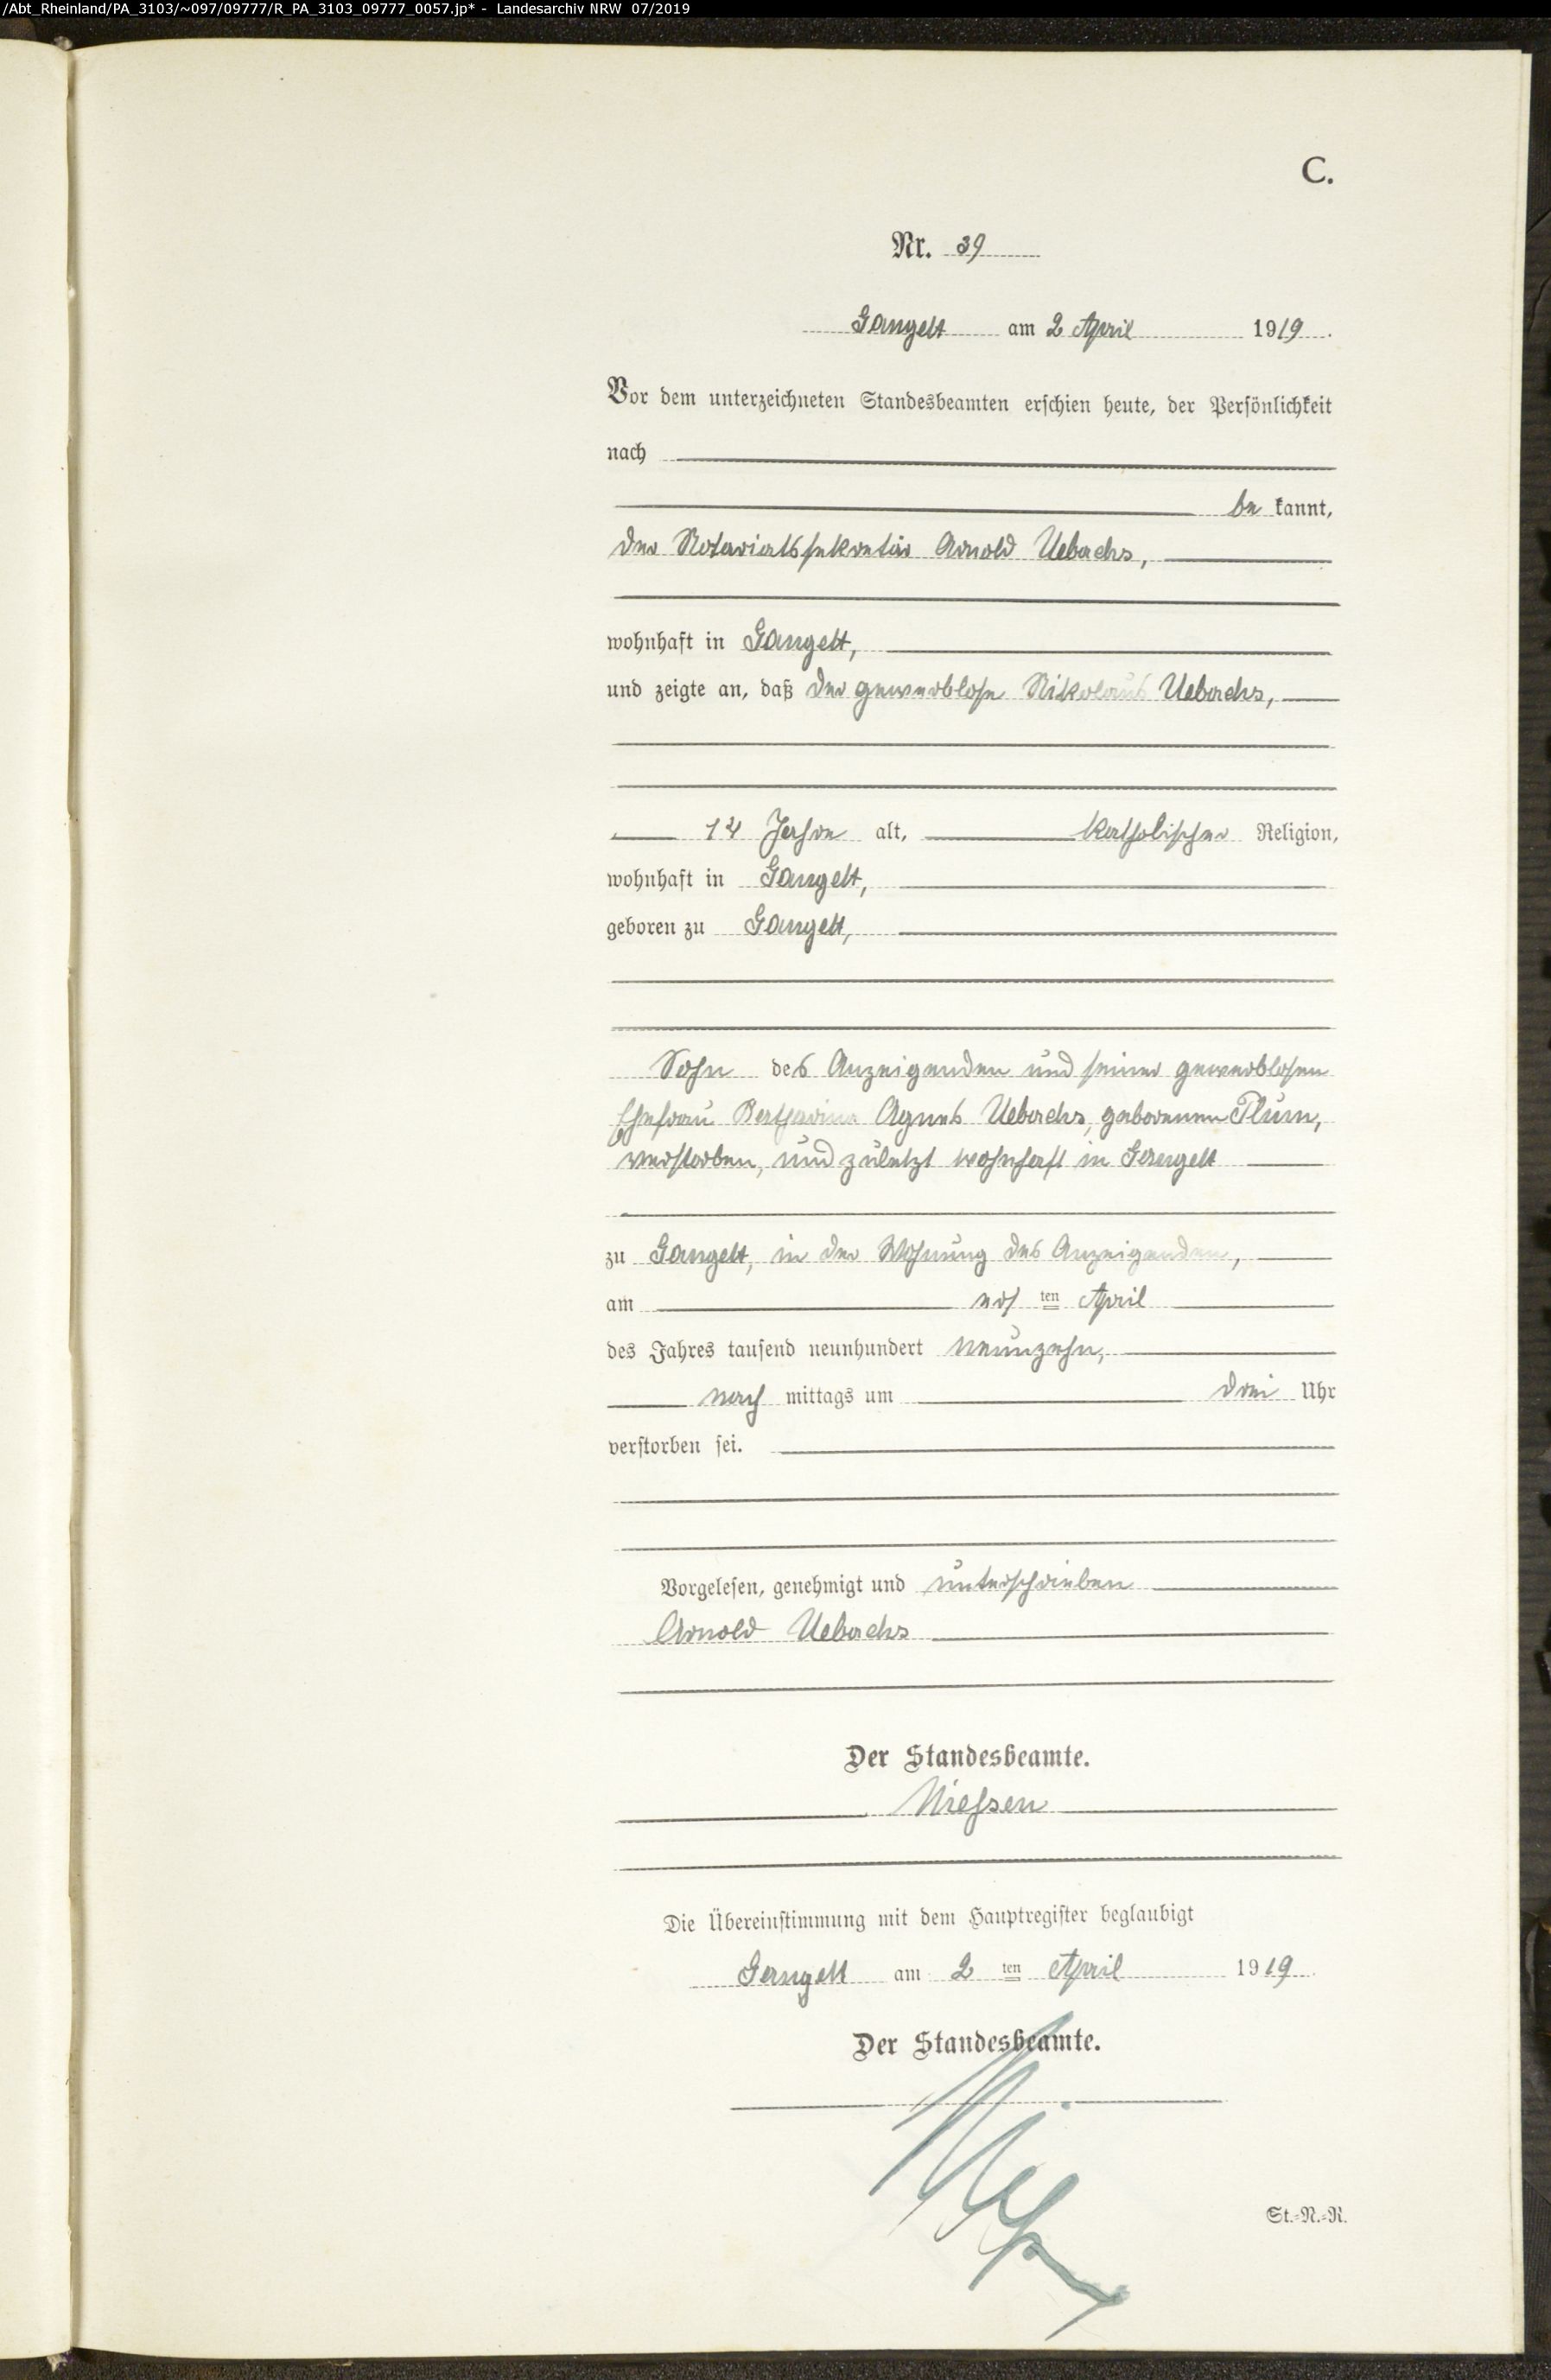 /Abt_Rheinland/PA_3103/~097/09777/R_PA_3103_09777_0057.jp* - Landesarchiv NRW 07/2019
C.
Nr. 39
Gangelt am 2 April 1919.
Vor dem unterzeichneten Standesbeamten erschien heute, der Persönlichkeit
nach
be kannt,
der Notariatssekretär Arnold Uebachs,
wohnhaft in Gangelt,
und zeigte an, daß der gewerblose Nikolaus Uebachs,
14 Jahre alt, katholischer Religion,
wohnhaft in Gangelt,
geboren zu Gangelt,
Sohn des Anzeigenden und seiner gewerblosen
Ehefrau Agnes Uebachs, geborenen Plum,
verstorben, und zuletzt wohnhaft in Gangelt
zu Gangelt, in der Wohnung des Anzeigenden,
am ers ten April
des Jahres tausend neunhundert neunzehn,
nach mittags um drei Uhr
verstorben sei.
Vorgelesen, genehmigt und unterschrieben
Arnold Uebachs
Der Standesbeamte.
Niessen
Die Übereinstimmung mit dem Hauptregister beglaubigt
Gangelt am 2 ten April 1919
Der Standesbeamte.
St.-N.-R.